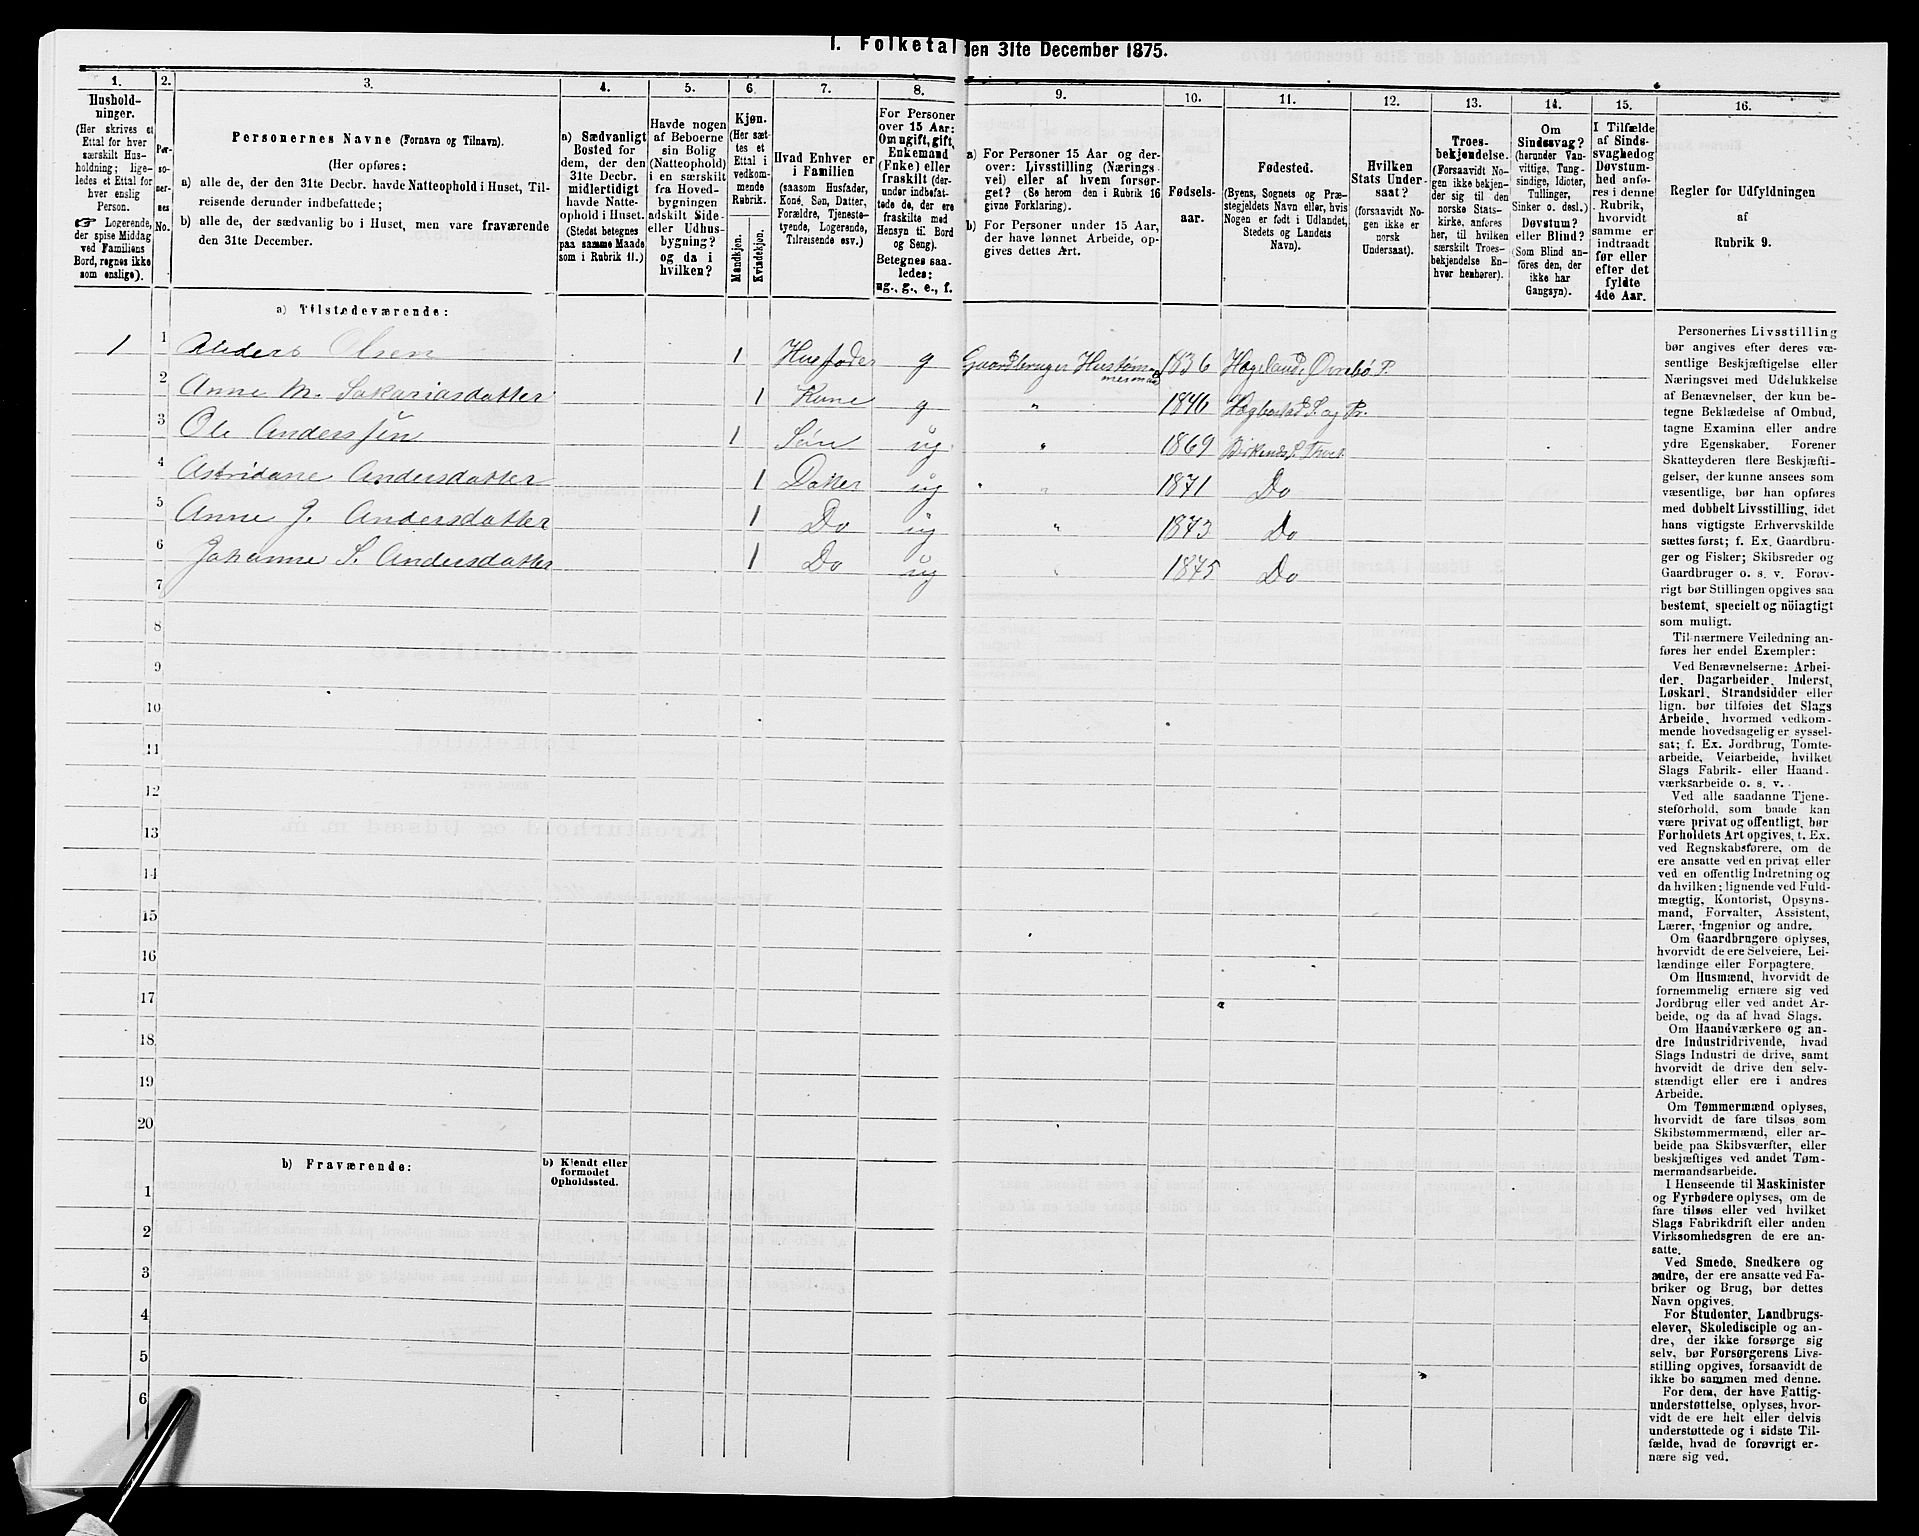 1. Folketal den 31te December 1875.
1. 2. 3. 4. 5. 6. 7. 8. 9. 10. 11. 12. 13. 14. 15. 16.
Hushold-
ninger.
(Her skrives et
Ettal for hver
særskilt Hus-
holdning; lige-
ledes et Ettal for
hver enslig
Person.
☞ Logerende,
der spise Middag
ved Familiens
Bord, regnes ikke
som enslige).
Per-
so-
ner-
nes
No.
Personernes Navne (Fornavn og Tilnavn).
(Her opføres:
a) alle de, der den 31te Decbr. havde Natteophold i Huset, Til-
reisende derunder indbefattede;
b) alle de, der sædvanlig bo i Huset, men vare fraværende
den 31te December.
a) Sædvanligt
Bosted for
dem, der den
31te Decbr.
midlertidigt
havde Natte-
ophold i Huset.
(Stedet betegnes
paa samme Maade
som i Rubrik 11.)
Havde nogen
af Beboerne
sin Bolig
(Natteophold)
i en særskilt
fra Hoved-
bygningen
adskilt Side-
eller Udhus-
bygning?
og da i
hvilken?
Kjøn.
(Her sæt-
tes et
Ettal i
vedkom-
mende
Rubrik.
Mandkjøn.
Kvindekjøn.
Hvad Enhver er
i Familien
(saasom Husfader,
Kone, Søn, Datter,
Forældre, Tjeneste-
tyende, Logerende,
Tilreisende osv.)
For Personer
over 15 Aar:
Om ugift, gift,
Enkemand
(Enke) eller
fraskilt (der-
under indbefat-
tede de, der ere
fraskilte med
Hensyn til Bord
og Seng).
Betegnes saa-
ledes:
ug., g., e., f.
a) For Personer 15 Aar og der-
over: Livsstilling (Nærings-
vei) eller af hvem forsør-
get? (Se herom den i Rubrik 16
givne Forklaring).
b) For Personer under 15 Aar,
der have lønnet Arbeide, op-
gives dettes Art.
Fødsels-
aar.
Fødested.
(Byens, Sognets og Præ-
stegjeldets Navn eller, hvis
Nogen er født i Udlandet,
Stedets og Landets
Navn).
Hvilken
Stats Under-
saat?
(forsaavidt No-
gen ikke er
norsk
Undersaat).
Troes-
bekjendelse.
(Forsaavidt No-
gen ikke bekjen-
der sig til den
norske Stats-
kirke, anføres
her, til hvilken
særskilt Troes-
bekjendelse En-
hver henhører).
Om
Sindssvag?
(herunder Van-
vittige, Tung-
sindige, Idioter,
Tullinger,
Sinker o. desl.)
Døvstum?
eller Blind?
(Som Blind an-
føres den, der
ikke har
Gangsyn).
I Tilfælde
af Sinds-
svaghed og
Døvstum-
hed anfø-
res i denne
Rubrik,
hvorvidt
samme er
indtraadt
før eller
efter det
fyldte
4de Aar.
Regler for Udfyldningen
af
Rubrik 9.
a) Tilstedeværende:
1 1 Anders Olsen 1 Husfader g Gaardbruger Hustømmermand 1836 Hægeland, Øvrebø P.
2 Anne M. Sakariasdatter 1 Kone g " 1846 Hægbostad S. og Pr.
3 Ole Anderssen 1 Søn ug " 1869 Birkenes S. Tvet
4 Astridane Andersdatter 1 Datter ug " " 1871 Do
5 Anne J. Andersdatter 1 Do ug " 1873 Do
6 Johanne S. Andersdatter 1 Do ug " 1875 Do
7
8
9
10
11
12
13
14
15
16
17
18
19
20
b) Fraværende:
b) Kjendt eller
formodet
Opholdssted.
1
2
3
4
5
6
Personernes Livsstilling
bør angives efter deres væ-
sentlige Beskjæftigelse eller
Næringsvei med Udelukkelse
af Benævnelser, der kun be-
tegne Beklædelse af Ombud,
tagne Examina eller andre
ydre Egenskaber. Forener
Skatteyderen flere Beskjæfti-
gelser, der kunne ansees som
væsentlige, bør han opføres
med dobbelt Livsstilling, idet
hans vigtigste Erhvervskilde
sættes først; f. Ex. Gaardbru-
ger og Fisker; Skibsreder og
Gaardbruger o. s. v. Forøv-
rigt bør Stillingen opgives saa
bestemt, specielt og nöiagtigt
som muligt.
Til nærmere Veiledning an-
føres her endel Exempler:
Ved Benævnelserne: Arbei-
der, Dagarbeider, Inderst,
Løskarl, Strandsidder eller
lign. bør tilføies det Slags
Arbeide, hvormed vedkom-
mende hovedsagelig er syssel-
sat; f. Ex. Jordbrug, Tomte-
arbeide, Veiarbeide, hvilket
Slags Fabrik- eller Haand-
værksarbeide o. s. v.
Ved alle saadanne Tjene-
steforhold, som baade kan
være privat og offentligt, bør
Forholdets Art opgives, t. Ex.
ved Regnskabsførere, om de
ere ansatte ved en privat eller
ved en offentlig Indretning og
da hvilken; lignende ved Fuld-
mægtig, Kontorist, Opsyns-
mand, Forvalter, Assistent,
Lærer, Ingeniør og andre.
Om Gaardbrugere oplyses,
hvorvidt de ere Selveiere, Lei-
lændinge eller Forpagtere.
Om Husmænd, hvorvidt de
fornemmelig ernære sig ved
Jordbrug eller ved andet Ar-
beide, og da af hvad Slags.
Om Haandværkere og an-
dre Industridrivende, hvad
Slags Industri de drive, samt
hvorvidt de drive den selv-
stændigt eller ere i andres
Arbeide.
Om Tømmermænd oplyses,
hvorvidt de fare tilsøs som
Skibstømmermænd, eller ar-
beide paa Skibsværfter, eller
beskjæftiges ved andet Tøm-
mermandsarbeide.
I Henseende til Maskinister
og Fyrbødere oplyses, om de
fare tilsøs eller ved hvilket
Slags Fabrikdrift eller anden
Virksomhedsgren de ere an-
satte.
Ved Smede, Snedkere og
andre, der ere ansatte ved Fa-
briker og Brug, bør dettes
Navn opgives.
For Studenter, Landbrugs-
elever, Skoledisciple og an-
dre, der ikke forsørge sig
selv, bør Forsørgerens Livs-
stilling opgives, forsaavidt de
ikke bo sammen med denne.
For dem, der have Fattig-
understøttelse, oplyses, hvor-
vidt de ere helt eller delvis
understøttede og i sidste Til-
fælde, hvad de forøvrigt er-
nære sig ved.